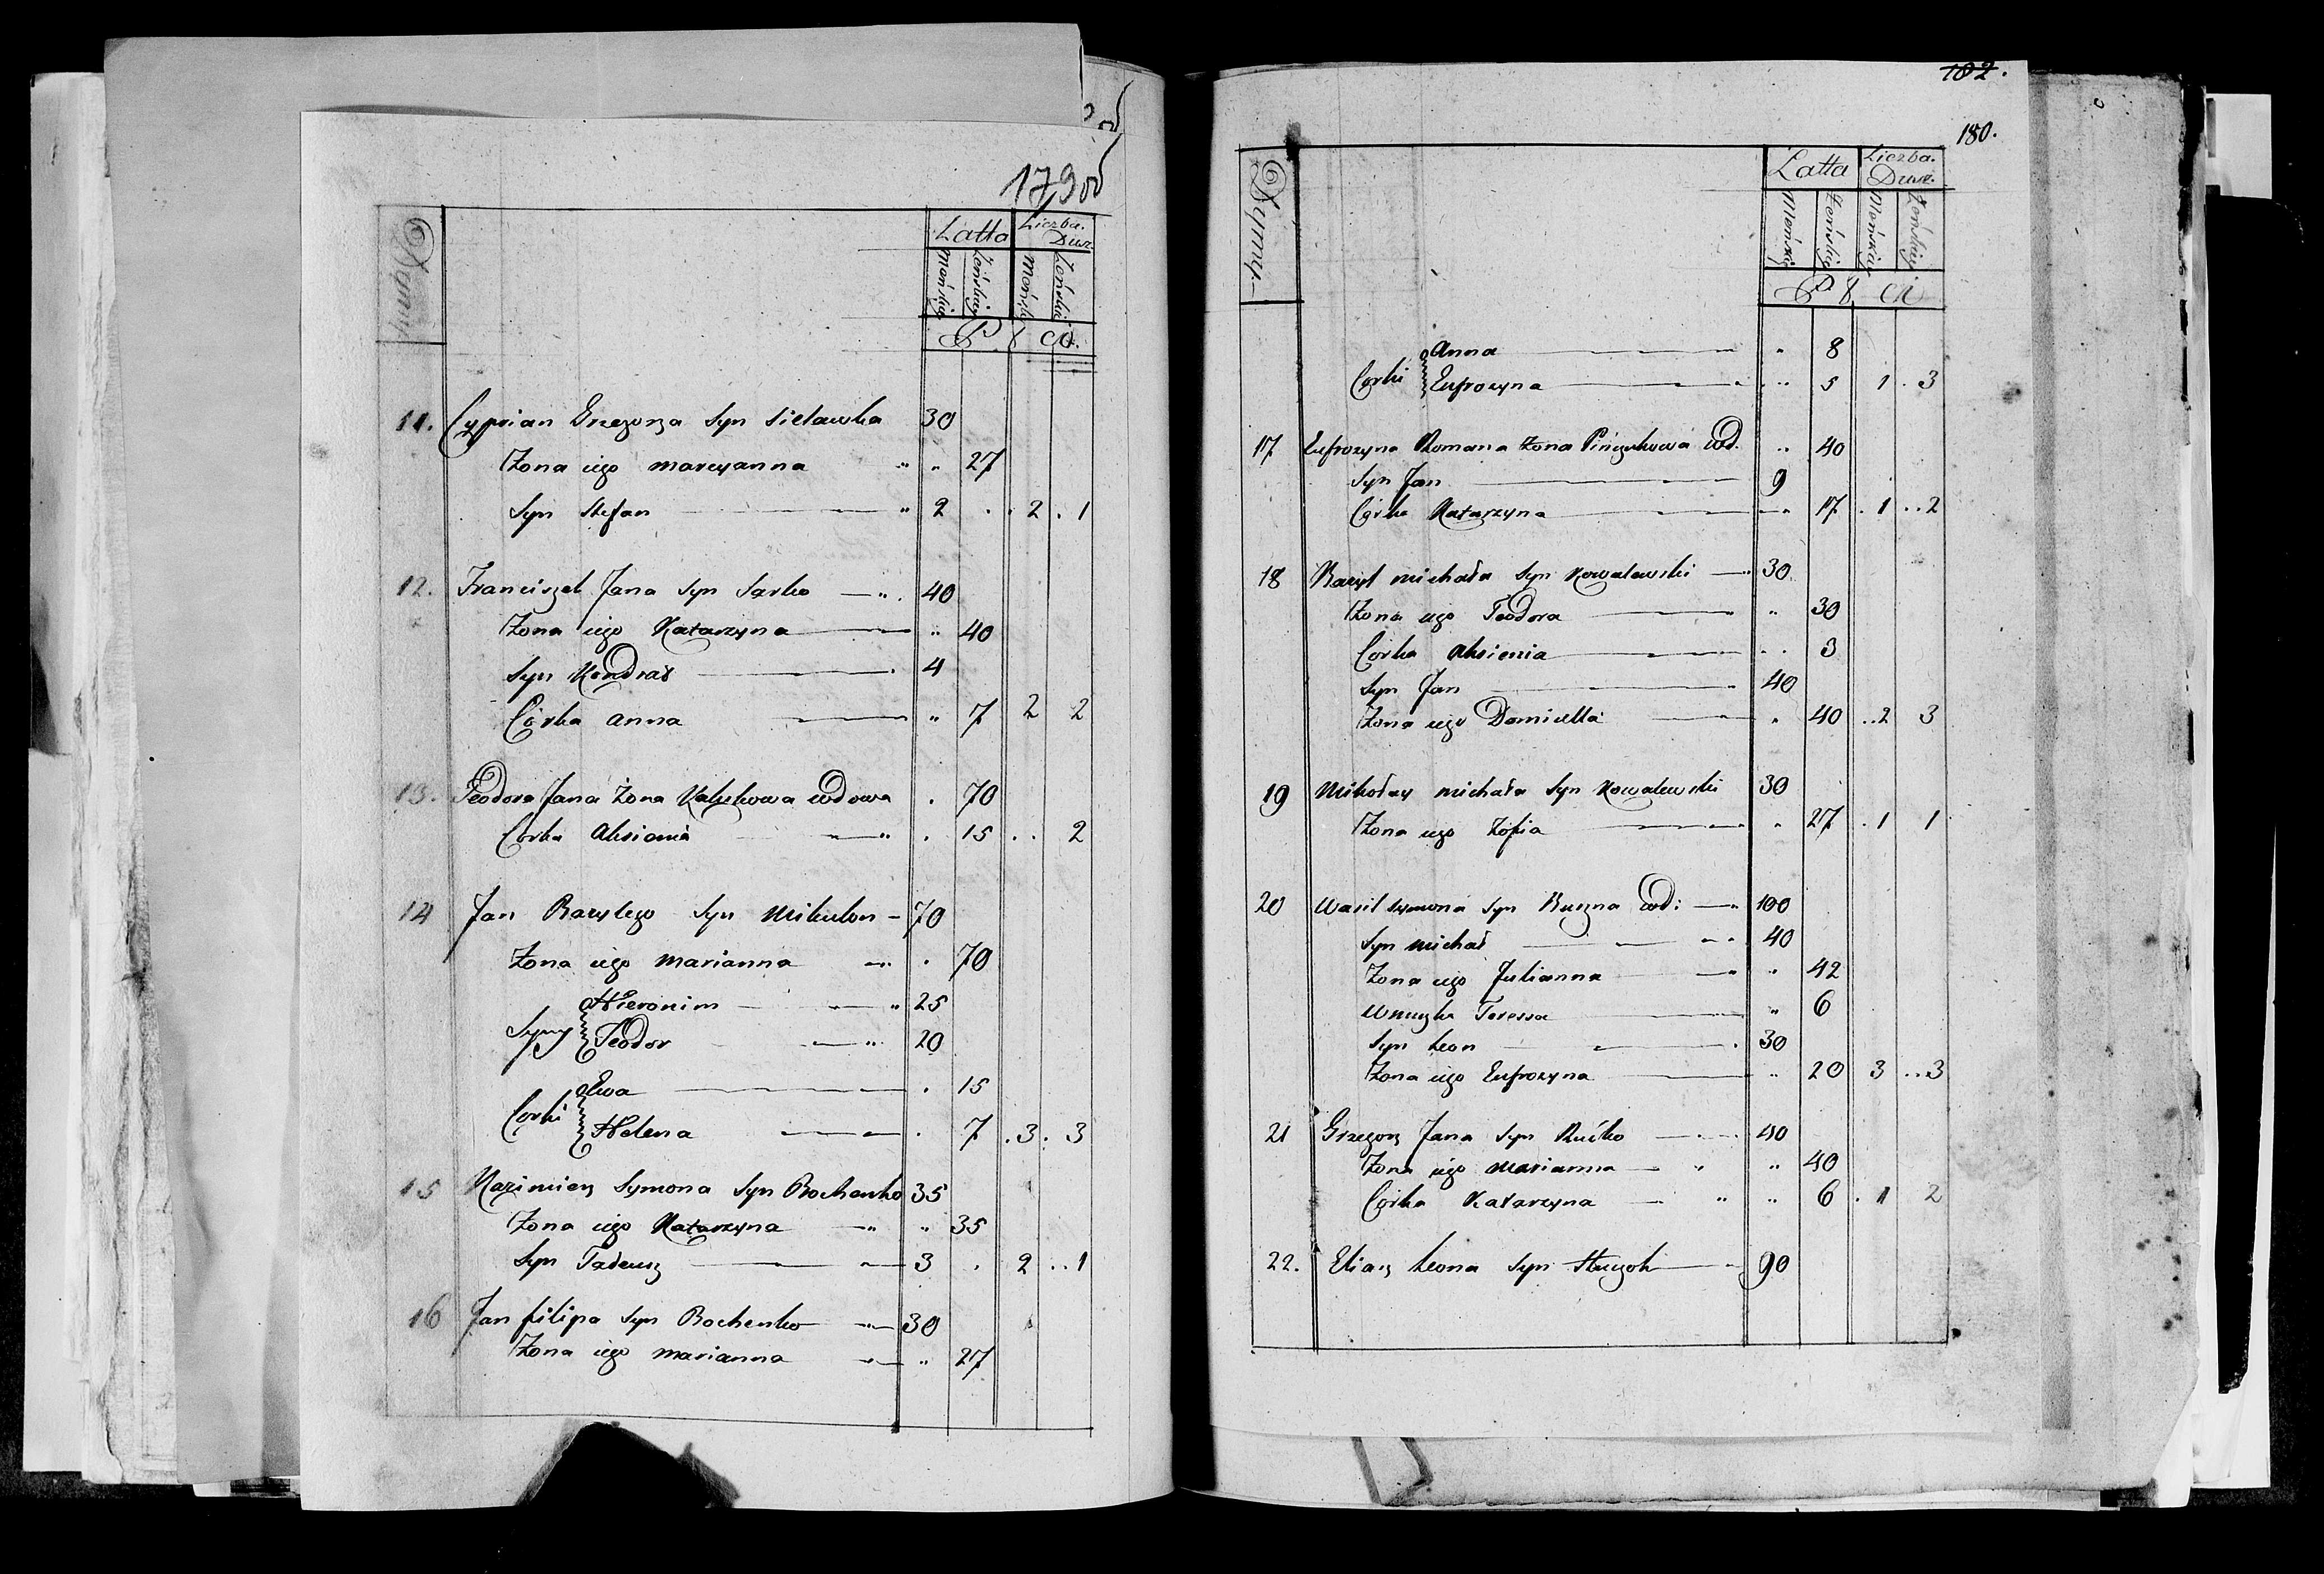 179 od
Dymy
Latta
Liczba Dusz
Męskiej
Żeńskiej
Męskiej
Żeńskiej
Płci
11. Cyprian Grzegorza Syn Sieławka 30
Żona iego Marcyanna " " 27
Syn Stefan " 2 . . 2 . 1
12. Franciszek Jana Syn Sarko — " . 40
Żona iego Katarzyna " 40
Syn Kondrat . 4
Córka Anna " 7 2 2
13. Teodora Jana Żona wdowa . 70
Corka Aksienia " . 15 . . 2
14 Jan Bazylego Syn Mikulon - 70
Żona iego Marianna . 70
Syny Hieronim " 25
Teodor " 20
Corki Ewa . 15
Helena . 7 . 3 . 3
15 Kazimierz Symona Syn Bochenko 35
Żona iego Katarzyna " " 35
Syn Tadeusz 3 . 2 . . 1
16 Jan Filipa Syn Bochenko 30
Żona iego Marianna " 27
182.
180.
Dymy
Latta
Liczba Dusz
Męskiej
Żeńskiej
Męskiej
Żeńskiej
Płci
Corki Anna " 8
Eufrozyna " 5 1 . 3
17 Eufrozyna Romana Żona wd. " 40
Syn Jan 9
Córka Katarzyna " 17 . 1 . . 2
18 Bazyl Michała Syn Kowalewski — " 30
Żona iego Teodora " 30
Corka Aksienia . . 3
Syn Jan 40
Żona iego Domicella " 40 . . 2 3
19 Mikołay Michała Syn Kowalewski 30
Żona iego Zofia " 27 . 1 1
20 Wasil Symona Syn Buszna wd: — " 100
Syn Michał 40
Żona iego Julianna " " 42
Wnuczka Teressa " 6
Syn Leon . 30
Żona iego Eufrozyna " 20 3 . . 3
21 Grzegorz Jana Syn Rućko 40
Żona iego Marianna — " " 40
Corka Katarzyna — " " 6 . 1 2
22. Eliasz Leona Syn 90